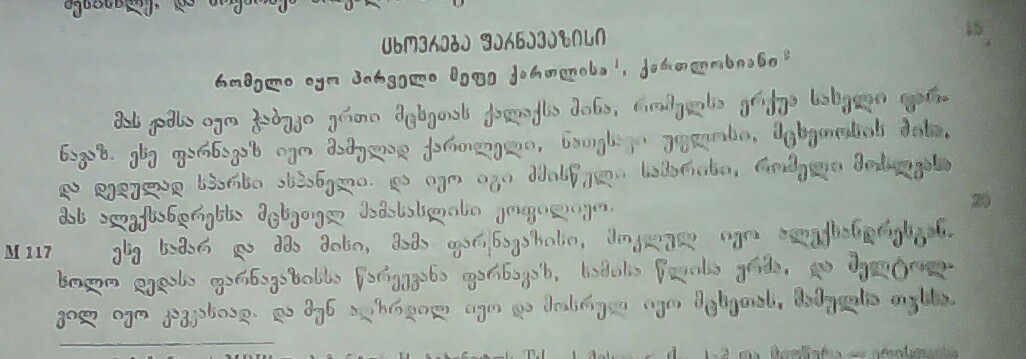 ცხოვრება ფარნავაზისი
რომელი იყო პირველი მეფე ქართლისა¹, ქართლოსიანი²
მას ჟამსა იყო ჭაბუკი ერთი მცხეთას ქალაქსა შინა, რომელსა ერქუა სახელი ფარ-
ნავაზ. ესე ფარნავაზ იყო მამულად ქართლელი, ნათესავი უფლოსი, მცხეთოსის ძისა,
და დედულად სპარსი ასპანელი. და იყო იგი ძმისწული სამარისი, რომელი მოსლვასა
მას ალექსანდრესსა მცხეთელ მამასახლისი ყოფილიყო.
20
M 117
ესე სამარ და ძმა მისი, მამა ფარნავაზისი, მოკლულ იყო ალექსანდრესგან.
ხოლო დედასა ფარნავაზისსა წარეყვანა ფარნავაზ, სამისა წლისა ყრმა, და შელტოლ-
ვილ იყო კავკასიად. და მუნ აღზრდილ იყო და მოსრულ იყო მცხეთას, მამულსა თჳსსა.